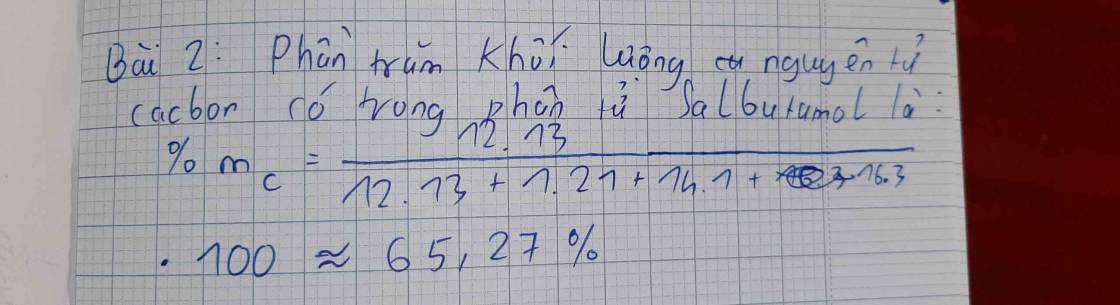 Bài 2: Phần trăm khối lượng nguyên tử
cacbon có trong phân tử Salbutamol là:
% m_C = \frac{12.13}{12.13 + 1.21 + 14.1 + 16.3}
. 100 ≈ 65,27 %